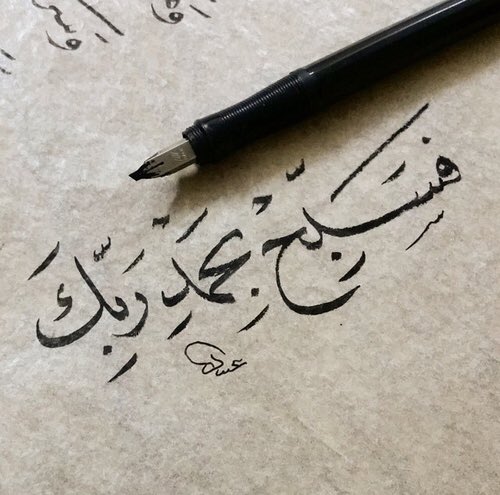 فَسَبِّحْ بِحَمْدِ رَبِّكَ